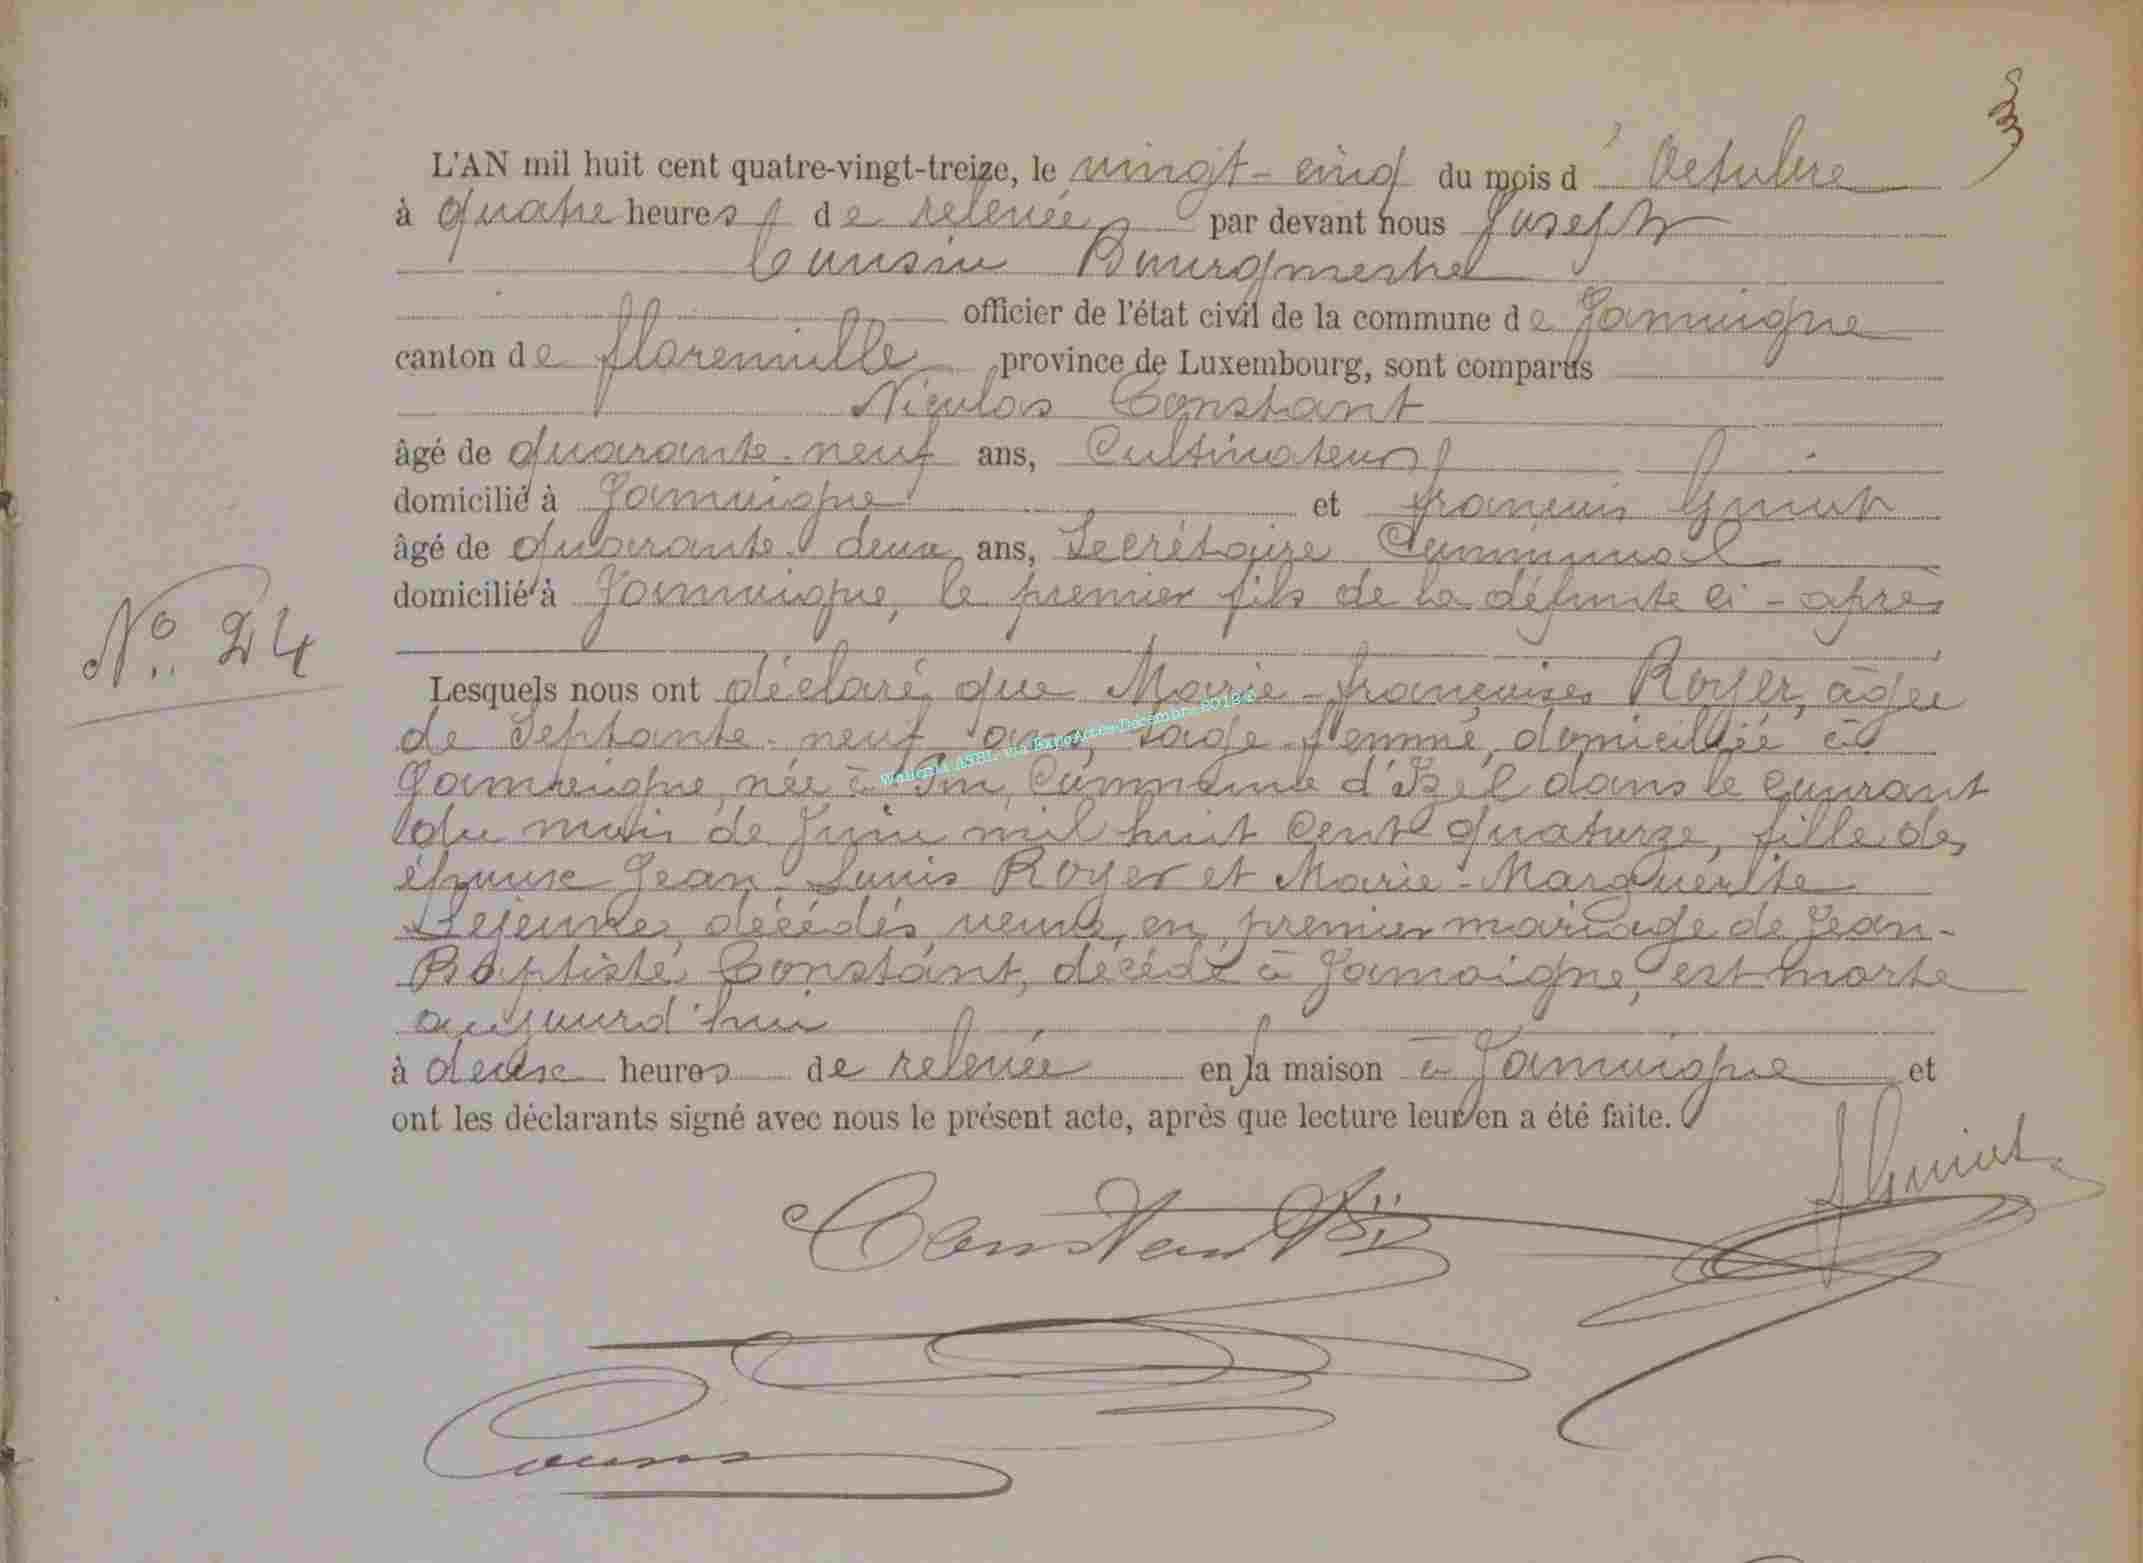 L'AN mil huit cent quatre-vingt-treize, le vingt-cinq du mois d'Octobre
à quatre heures de relevée par devant nous Joseph
Cousin Bourgmestre
officier de l'état civil de la commune de Jamoigne
canton de florenville province de Luxembourg, sont comparus
Nicolas Constant
âgé de quarante-neuf ans, Cultivateur
domicilié à Jamoigne et françois Guiot
âgé de quarante-deux ans, Secrétaire Communal
domicilié à Jamoigne, le premier fils de la défunte ci-après
N° 24
Lesquels nous ont déclaré que Marie-françoise Royer, âgée
de Septante-neuf ans, sage-femme, domiciliée à
Jamoigne, née à Pin, Commune d'Izel dans le courant
du mois de Juin mil huit cent quatorze, fille des
époux Jean-Louis Royer et Marie-Marguerite
Lejeune, décédés, veuve en premier mariage de Jean-
Baptiste Constant, décédé à Jamoigne, est morte
aujourd'hui
à deux heures de relevée en la maison à Jamoigne et
ont les déclarants signé avec nous le présent acte, après que lecture leur en a été faite.
Wallonia ASBL via ExpoActes-Décembre 2018
Guiot
Constant
Cousin